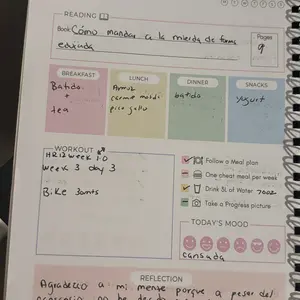 READING
Book: Cómo mandar a la mierda de forma
educada
Pages
9
BREAKFAST
LUNCH
DINNER
SNACKS
Batido
+
tea
Arroz
carne moldi
pico gallo
batido
yogurt
WORKOUT
HR12WEEK 1.0
week 3 day 3
Bike 30mts
Follow a Meal plan
One cheat meal per week
Drink 3L of Water 70oz
Take a Progress picture
TODAY'S MOOD
cansada
REFLECTION
Agradezco a mi mente porque a pesar del